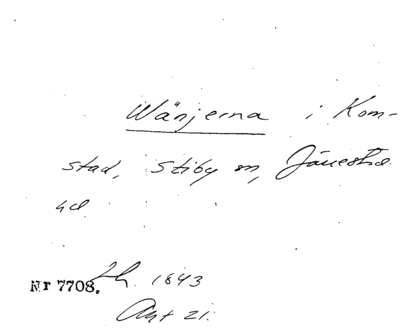 Wänjerna i Kom-
stad, Stiby sn, Järrestads
hd
Nr 7708. Lh. 1843
Akt 21.